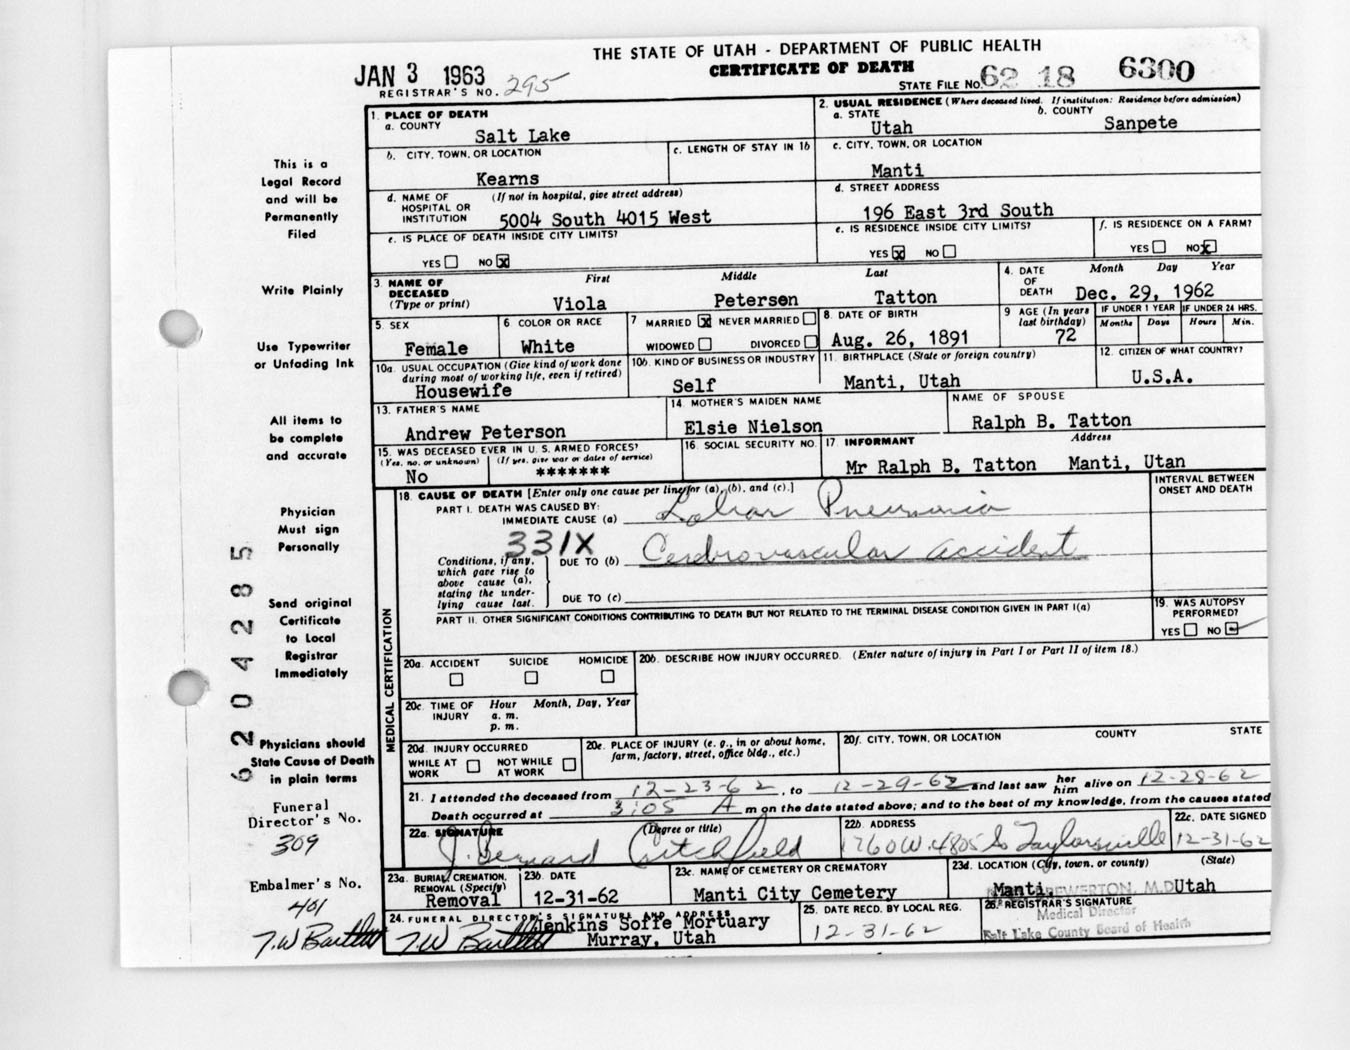 THE STATE OF UTAH - DEPARTMENT OF PUBLIC HEALTH
CERTIFICATE OF DEATH
JAN 3 1963
REGISTRAR'S NO. 295
STATE FILE NO. 62 18 6300
1. PLACE OF DEATH
a. COUNTY
Salt Lake
2. USUAL RESIDENCE (Where deceased lived. If institution: Residence before admission)
a. STATE
Utah
b. COUNTY
Sanpete
b. CITY, TOWN, OR LOCATION
Kearns
c. LENGTH OF STAY IN 1b
c. CITY, TOWN, OR LOCATION
Manti
d. NAME OF HOSPITAL OR INSTITUTION
(If not in hospital, give street address)
5004 South 4015 West
d. STREET ADDRESS
196 East 3rd South
e. IS PLACE OF DEATH INSIDE CITY LIMITS?
YES NO X
e. IS RESIDENCE INSIDE CITY LIMITS?
YES X NO
f. IS RESIDENCE ON A FARM?
YES NO X
3. NAME OF DECEASED
(Type or print)
First Middle Last
Viola Petersen Tatton
4. DATE OF DEATH
Month Day Year
Dec. 29, 1962
5. SEX
Female
6 COLOR OR RACE
White
7 MARRIED X NEVER MARRIED
WIDOWED DIVORCED
8. DATE OF BIRTH
Aug. 26, 1891
9 AGE (In years last birthday)
72
IF UNDER 1 YEAR
Months Days
IF UNDER 24 HRS.
Hours Min.
10a. USUAL OCCUPATION (Give kind of work done during most of working life, even if retired)
Housewife
10b. KIND OF BUSINESS OR INDUSTRY
Self
11. BIRTHPLACE (State or foreign country)
Manti, Utah
12. CITIZEN OF WHAT COUNTRY?
U.S.A.
13. FATHER'S NAME
Andrew Peterson
14. MOTHER'S MAIDEN NAME
Elsie Nielson
NAME OF SPOUSE
Ralph B. Tatton
15. WAS DECEASED EVER IN U. S. ARMED FORCES?
(Yes, no, or unknown) (If yes, give war or dates of service)
No *******
16. SOCIAL SECURITY NO.
17. INFORMANT Address
Mr Ralph B. Tatton Manti, Utan
18. CAUSE OF DEATH [Enter only one cause per line for (a), (b), and (c).]
PART I. DEATH WAS CAUSED BY:
IMMEDIATE CAUSE (a) Lobar Pneumonia
INTERVAL BETWEEN ONSET AND DEATH
331X
Conditions, if any, which gave rise to above cause (a), stating the underlying cause last.
DUE TO (b) Cerebrovascular accident
DUE TO (c)
PART II. OTHER SIGNIFICANT CONDITIONS CONTRIBUTING TO DEATH BUT NOT RELATED TO THE TERMINAL DISEASE CONDITION GIVEN IN PART I(a)
19. WAS AUTOPSY PERFORMED?
YES NO
MEDICAL CERTIFICATION
20a. ACCIDENT SUICIDE HOMICIDE
20b. DESCRIBE HOW INJURY OCCURRED. (Enter nature of injury in Part I or Part II of item 18.)
20c. TIME OF INJURY
Hour Month, Day, Year
a. m.
p. m.
20d. INJURY OCCURRED
WHILE AT WORK NOT WHILE AT WORK
20e. PLACE OF INJURY (e. g., in or about home, farm, factory, street, office bldg., etc.)
20f. CITY, TOWN, OR LOCATION COUNTY STATE
21. I attended the deceased from 12-23-62, to 12-29-62 and last saw her him alive on 12-28-62
Death occurred at 3:05 A m on the date stated above; and to the best of my knowledge, from the causes stated
22a. SIGNATURE (Degree or title)
J. Bernard Critchfield
22b. ADDRESS
1760 W. 4805 So Taylorsville
22c. DATE SIGNED
12-31-62
23a. BURIAL, CREMATION, REMOVAL (Specify)
Removal
23b. DATE
12-31-62
23c. NAME OF CEMETERY OR CREMATORY
Manti City Cemetery
23d. LOCATION (City, town, or county) (State)
Manti, Utah
24. FUNERAL DIRECTOR'S SIGNATURE AND ADDRESS
T.W Bartlett
Jenkins Soffe Mortuary
Murray, Utah
25. DATE RECD. BY LOCAL REG.
12-31-62
26. REGISTRAR'S SIGNATURE
BREWERTON, M.D
Medical Director
Salt Lake County Board of Health
This is a
Legal Record
and will be
Permanently
Filed
Write Plainly
Use Typewriter
or Unfading Ink
All items to
be complete
and accurate
Physician
Must sign
Personally
Send original
Certificate
to Local
Registrar
Immediately
Physicians should
State Cause of Death
in plain terms
Funeral
Director's No.
309
Embalmer's No.
401
T.W Bartlett
6204285